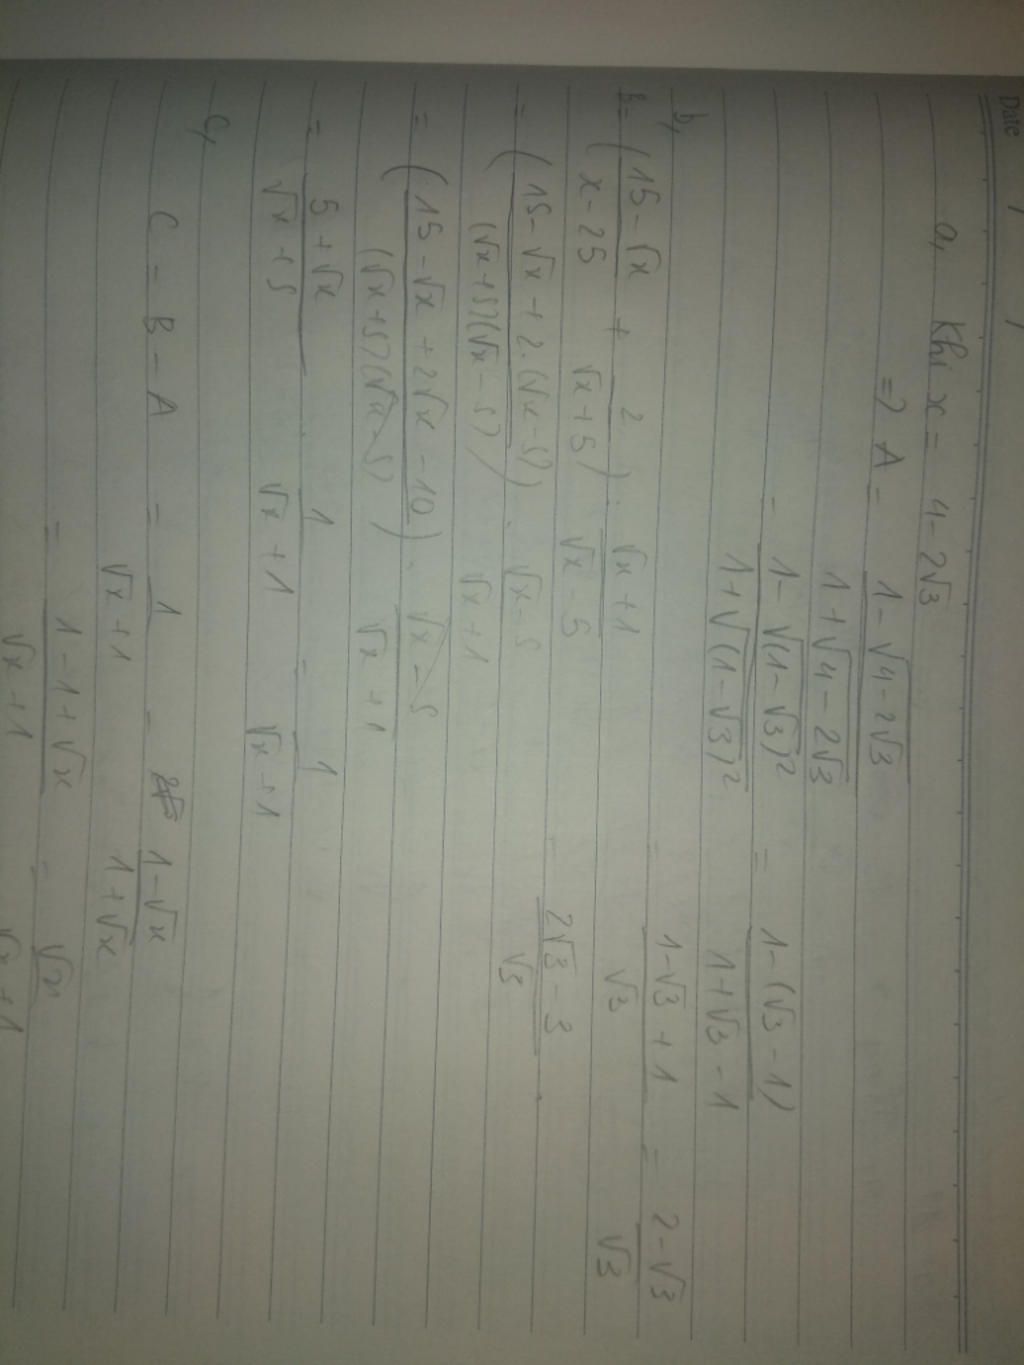 Date / /
a, Khi x = 4 - 2√3
=> A = (1 - √(4 - 2√3)) / (1 + √(4 - 2√3))
= (1 - √((1 - √3)²)) / (1 + √((1 - √3)²)) = (1 - (√3 - 1)) / (1 + √3 - 1)
= (1 - √3 + 1) / √3 = (2 - √3) / √3
= (2√3 - 3) / √3
b,
B = ((15 - √x) / (x - 25) + 2 / (√x + 5)) : (√x + 1) / (√x - 5)
= ((15 - √x + 2.(√x - 5)) / ((√x + 5)(√x - 5))) . (√x - 5) / (√x + 1)
= ((15 - √x + 2√x - 10) / ((√x + 5)(√x - 5))) . (√x - 5) / (√x + 1)
= (5 + √x) / (√x + 5) . 1 / (√x + 1) = 1 / (√x + 1)
c,
C = B - A = 1 / (√x + 1) - (1 - √x) / (1 + √x)
= (1 - 1 + √x) / (√x + 1) = √x / (√x + 1)